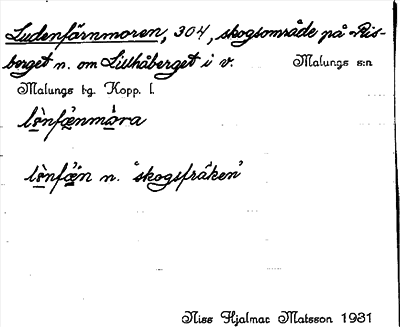 Ludenfärnmoren, 304, skogsområde på Ris-
berget n. om Lillhåberget i v. Malungs s:n
Malungs tg. Kopp. l.
n. 'skogsfräken'
Niss Hjalmar Matsson 1931